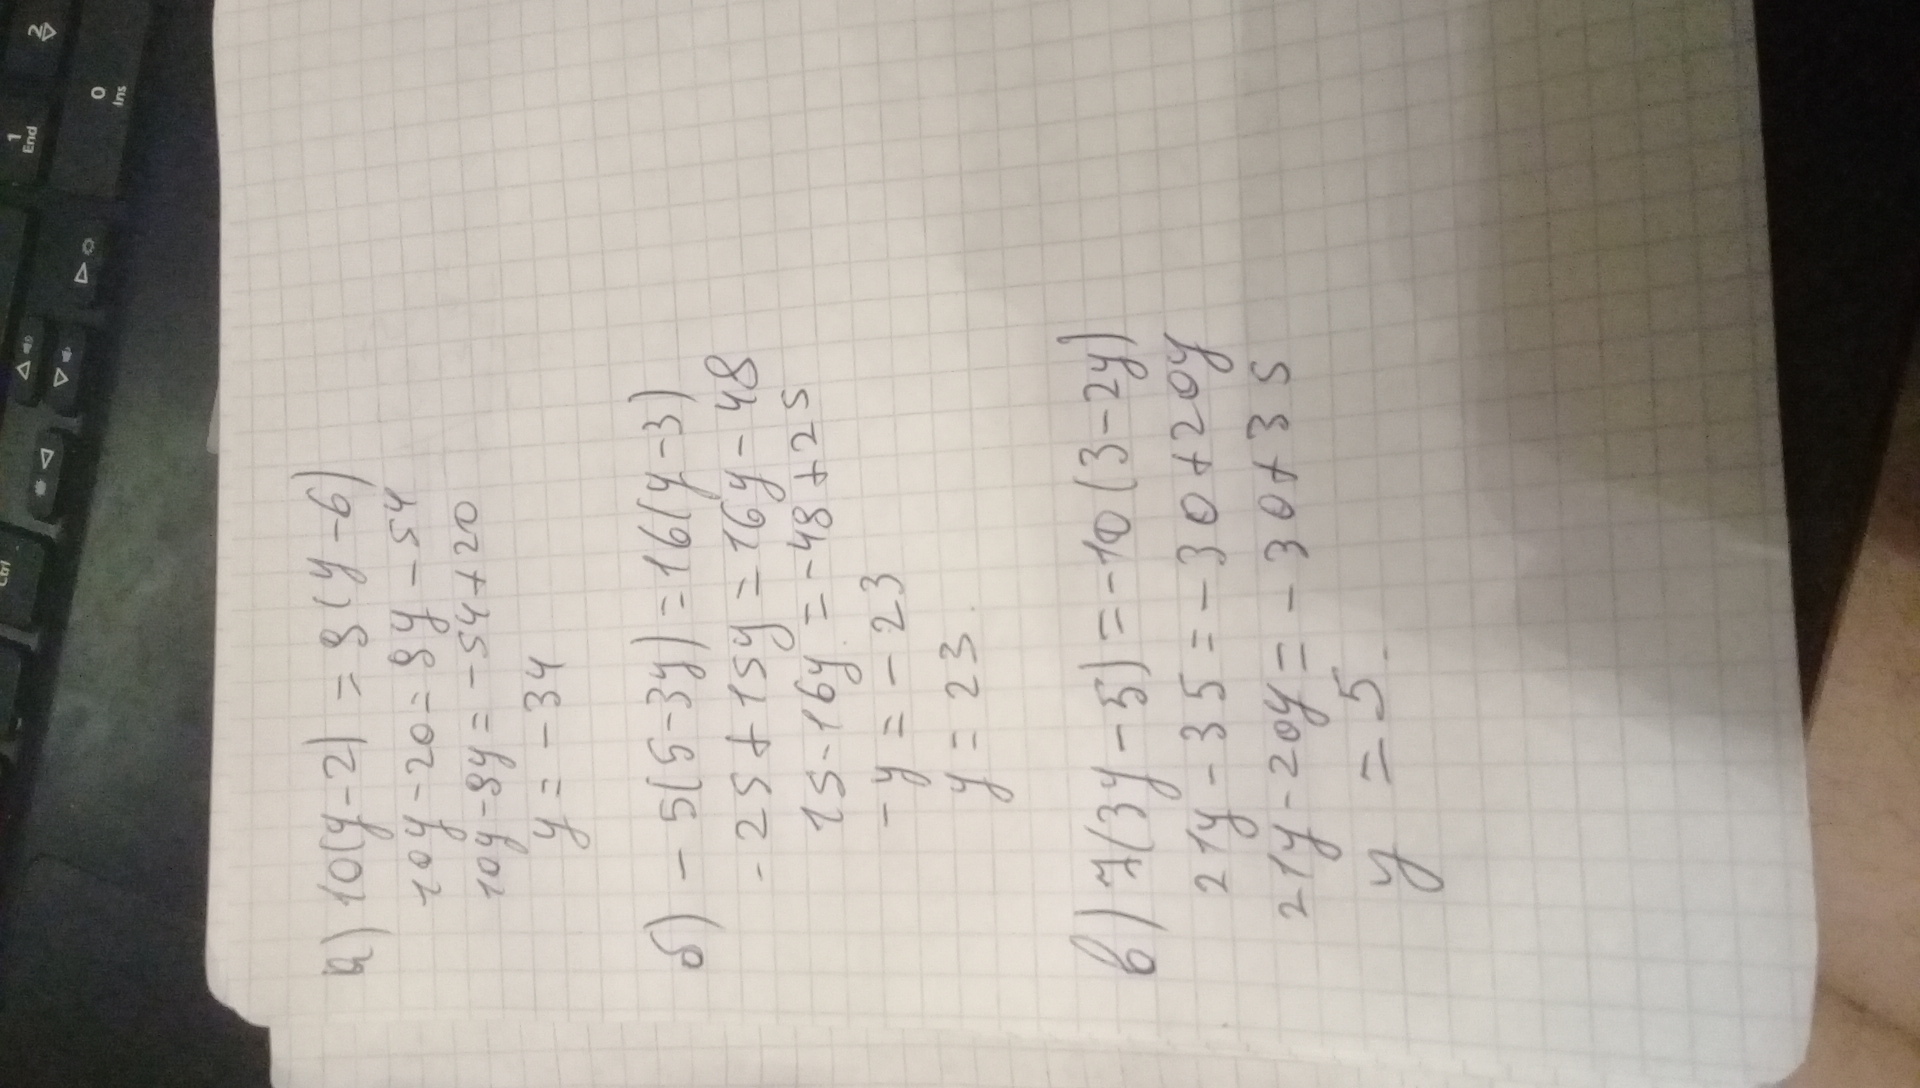 а) 10(y-2) = 9(y-6)
10y-20=9y-54
10y-9y=-54+20
y=-34
б) -5(5-3y)=16(y-3)
-25+15y=16y-48
15-16y=-48+25
-y=-23
y=23.
в) 7(3y-5)=-10(3-2y)
21y-35=-30+20y
21y-20y=-30+35
y=5.
2
1
End
0
Ins
Ctrl